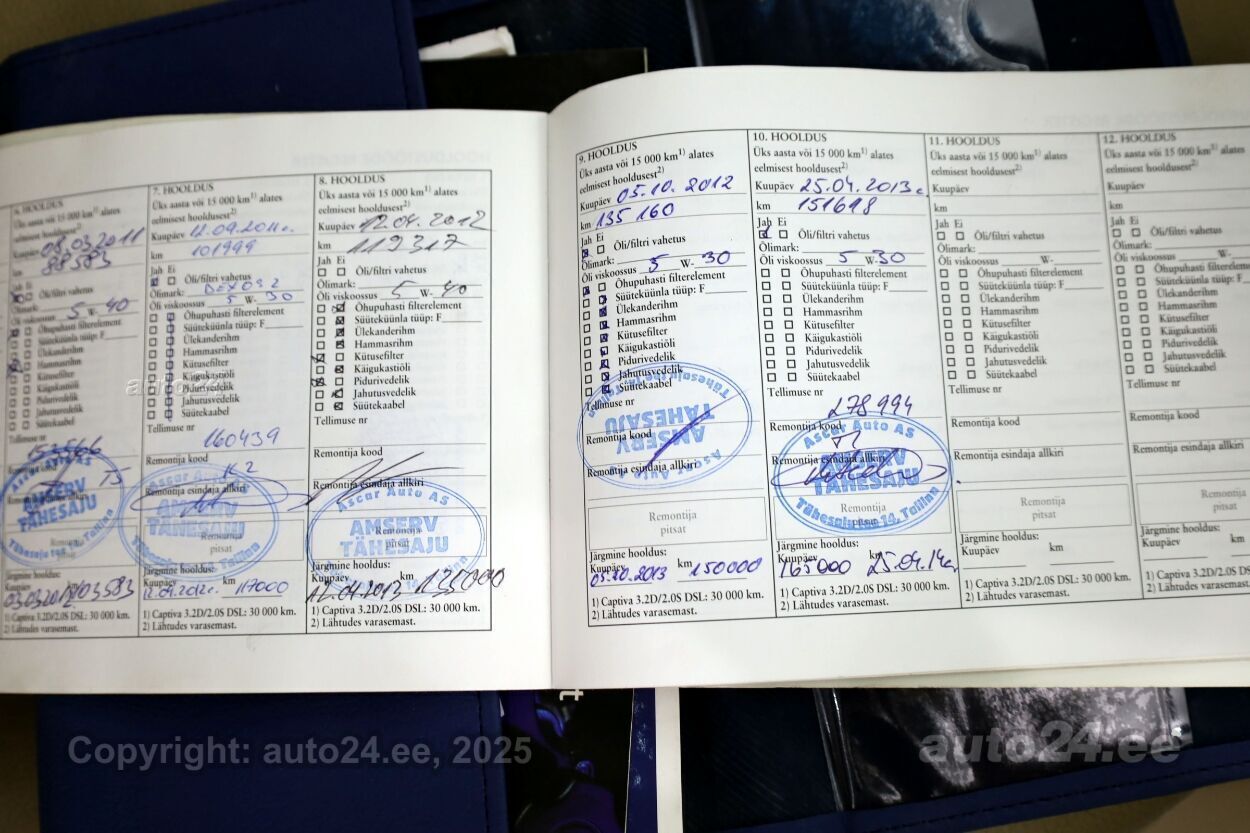 6. HOOLDUS
Üks aasta või 15 000 km¹⁾ alates
eelmisest hooldusest²⁾
Kuupäev 08.03.2011
km 88583
Jah Ei
Õli/filtri vahetus
Õlimark:
Õli viskoossus 5 W- 40
Õhupuhasti filterelement
Süüteküünla tüüp: F
Ülekanderihm
Hammasrihm
Kütusefilter
Käigukastiõli
Pidurivedelik
Jahutusvedelik
Süütekaabel
Tellimuse nr
AMSERV
TÄHESAJU
Järgmine hooldus:
Kuupäev km
103583
1) Captiva 3.2D/2.0S DSL: 30 000 km.
2) Lähtudes varasemast.
7. HOOLDUS
Üks aasta või 15 000 km¹⁾ alates
eelmisest hooldusest²⁾
Kuupäev 12.09.2011.
km 101999
Jah Ei
Õli/filtri vahetus
Õlimark: DEXOS 2
Õli viskoossus 5 W- 30
Õhupuhasti filterelement
Süüteküünla tüüp: F
Ülekanderihm
Hammasrihm
Kütusefilter
Käigukastiõli
Pidurivedelik
Jahutusvedelik
Süütekaabel
Tellimuse nr
160439
Remontija kood
K2
Remontija esindaja allkiri
Ascar Auto AS
AMSERV
TÄHESAJU
Remontija
pitsat
Järgmine hooldus:
Kuupäev km
12.09.2012. 117000
1) Captiva 3.2D/2.0S DSL: 30 000 km.
2) Lähtudes varasemast.
8. HOOLDUS
Üks aasta või 15 000 km¹⁾ alates
eelmisest hooldusest²⁾
Kuupäev 12.04.2012
km 119317
Jah Ei
Õli/filtri vahetus
Õlimark:
Õli viskoossus 5 W- 40
Õhupuhasti filterelement
Süüteküünla tüüp: F
Ülekanderihm
Hammasrihm
Kütusefilter
Käigukastiõli
Pidurivedelik
Jahutusvedelik
Süütekaabel
Tellimuse nr
Remontija kood
Remontija esindaja allkiri
Ascar Auto AS
AMSERV
TÄHESAJU
Remontija
pitsat
Järgmine hooldus:
Kuupäev km
12.04.2013 135000
1) Captiva 3.2D/2.0S DSL: 30 000 km.
2) Lähtudes varasemast.
9. HOOLDUS
Üks aasta või 15 000 km¹⁾ alates
eelmisest hooldusest²⁾
Kuupäev 05.10.2012
km 135 160
Jah Ei
Õli/filtri vahetus
Õlimark:
Õli viskoossus 5 W- 30
Õhupuhasti filterelement
Süüteküünla tüüp: F
Ülekanderihm
Hammasrihm
Kütusefilter
Käigukastiõli
Pidurivedelik
Jahutusvedelik
Süütekaabel
Tellimuse nr
Remontija kood
Remontija esindaja allkiri
Ascar Auto AS
AMSERV
TÄHESAJU
Remontija
pitsat
Järgmine hooldus:
Kuupäev km
05.10.2013 150000
1) Captiva 3.2D/2.0S DSL: 30 000 km.
2) Lähtudes varasemast.
10. HOOLDUS
Üks aasta või 15 000 km¹⁾ alates
eelmisest hooldusest²⁾
Kuupäev 25.04.2013
km 151618
Jah Ei
Õli/filtri vahetus
Õlimark:
Õli viskoossus 5 W- 30
Õhupuhasti filterelement
Süüteküünla tüüp: F
Ülekanderihm
Hammasrihm
Kütusefilter
Käigukastiõli
Pidurivedelik
Jahutusvedelik
Süütekaabel
Tellimuse nr
178994
Remontija kood
Ascar Auto AS
Remontija esindaja allkiri
AMSERV
TÄHESAJU
Remontija
pitsat
Tähesaju tee 14, Tallinn
Järgmine hooldus:
Kuupäev km
165000 25.04.14
1) Captiva 3.2D/2.0S DSL: 30 000 km.
2) Lähtudes varasemast.
11. HOOLDUS
Üks aasta või 15 000 km¹⁾ alates
eelmisest hooldusest²⁾
Kuupäev
km
Jah Ei
Õli/filtri vahetus
Õlimark:
Õli viskoossus W-
Õhupuhasti filterelement
Süüteküünla tüüp: F
Ülekanderihm
Hammasrihm
Kütusefilter
Käigukastiõli
Pidurivedelik
Jahutusvedelik
Süütekaabel
Tellimuse nr
Remontija kood
Remontija esindaja allkiri
Remontija
pitsat
Järgmine hooldus:
Kuupäev km
1) Captiva 3.2D/2.0S DSL: 30 000 km.
2) Lähtudes varasemast.
12. HOOLDUS
Üks aasta või 15 000 km¹⁾
eelmisest hooldusest²⁾
Kuupäev
km
Jah Ei
Õli/filtri vahetus
Õlimark:
Õli viskoossus
Õhupuhasti
Süüteküünla
Ülekanderihm
Hammasrihm
Kütusefilter
Käigukastiõli
Pidurivedelik
Jahutusvedelik
Süütekaabel
Tellimuse nr
Remontija kood
Remontija esindaja
Remontija
pitsat
Järgmine hooldus:
Kuupäev
1) Captiva 3.2D/2.0S
2) Lähtudes varasemast.
auto24
Copyright: auto24.ee, 2025
auto24.ee